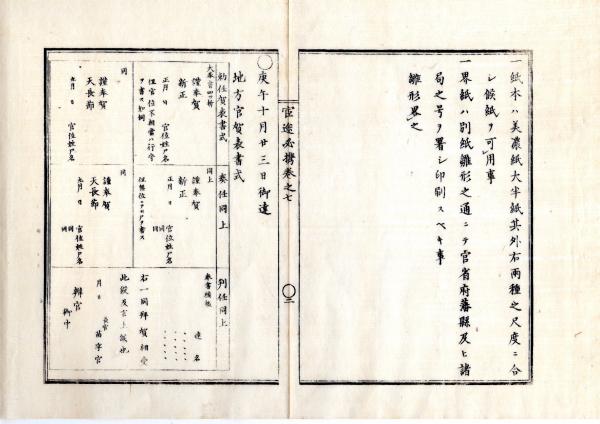 一紙木ハ美濃紙大半紙其外右兩種之尺度ニ合
シ候紙ヲ可用事
一界紙ハ別紙雛形之通ニテ官省府藩縣及ヒ諸
局之号ヲ署シ印刷スベキ事
雛形畧之
宦途必携卷之七
二
〇庚午十月廿三日御達
地方官賀表書式
勅任賀表書式
大奉書四ツ折
謹奉賀
新正
正月 日 官位姓尸名
但官位不相當ハ行守
ヲ書スル如例
同
謹奉賀
天長節
九月 日 官位姓尸名
奏任同上
同上
謹奉賀
新正
正月 日 官位姓尸名
同 同
同
謹奉賀
天長節
九月 日 官位姓尸名
同 同
判任同上
奉書横帋
連名
右一同拜賀相受
此段及言上候也
月 日 長官
苗字官
辨官
御中